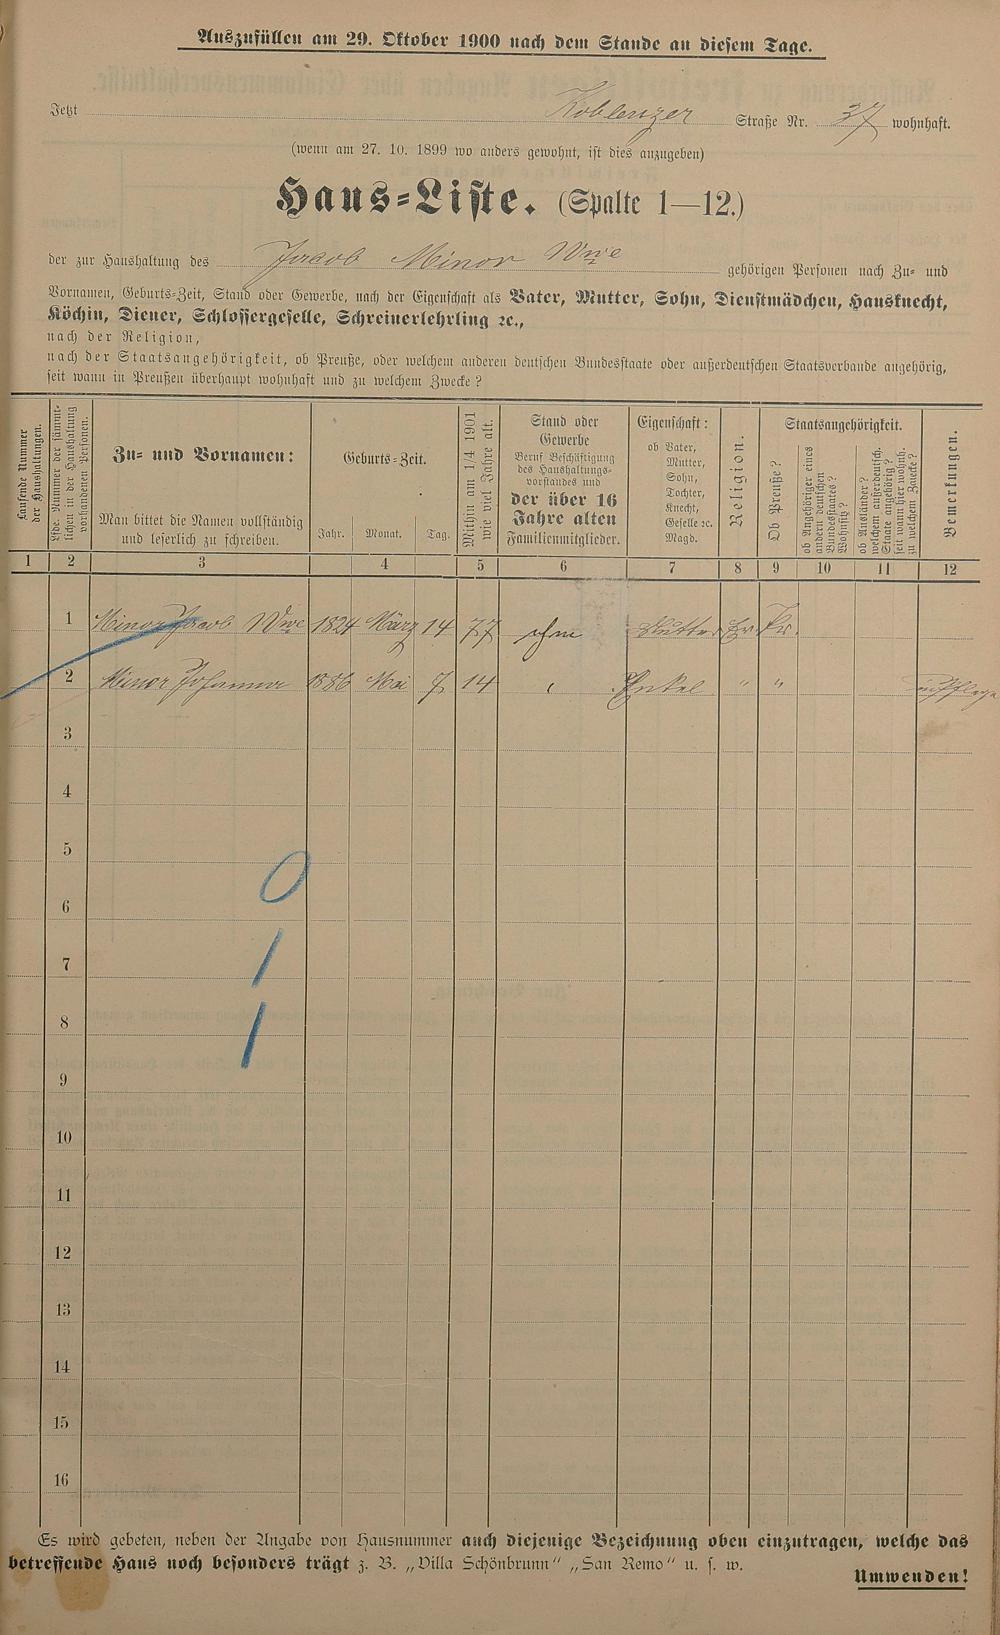 Auszufüllen am 29. Oktober 1900 nach dem Stande an diesem Tage.
Jetzt Koblenzer Straße Nr. 37 wohnhaft.
(wenn am 27. 10. 1899 wo anders gewohnt, ist dies anzugeben)
Haus-Liste. (Spalte 1—12.)
der zur Haushaltung des Jacob Minor Wwe gehörigen Personen nach Zu- und
Vornamen, Geburts-Zeit, Stand oder Gewerbe, nach der Eigenschaft als Vater, Mutter, Sohn, Dienstmädchen, Hausknecht,
Köchin, Diener, Schlossergeselle, Schreinerlehrling ꝛc.,
nach der Religion,
nach der Staatsangehörigkeit, ob Preuße, oder welchem anderen deutschen Bundesstaate oder außerdeutschen Staatsverbande angehörig,
seit wann in Preußen überhaupt wohnhaft und zu welchem Zwecke?
Laufende Nummer
der Haushaltungen.
Lfde. Nummer der sämmt-
lichen in der Haushaltung
vorhandenen Personen.
Zu- und Vornamen:
Man bittet die Namen vollständig
und leserlich zu schreiben.
Geburts-Zeit.
Jahr. Monat. Tag.
Mithin am 1/4 1901
wie viel Jahre alt.
Stand oder
Gewerbe
Beruf Beschäftigung
des Haushaltungs-
vorstandes und
der über 16
Jahre alten
Familienmitglieder.
Eigenschaft:
ob Vater,
Mutter,
Sohn,
Tochter,
Knecht,
Geselle ꝛc.
Magd.
Religion.
Staatsangehörigkeit.
Ob Preuße?
ob Angehöriger eines
andern deutschen
Bundesstaates?
Wohnsitz?
ob Ausländer?
welchem außerdeutsch.
Staate angehörig?
seit wann hier wohnh.
zu welchem Zwecke?
Bemerkungen.
1 2 3 4 5 6 7 8 9 10 11 12
1 Minor Jacob Wwe 1824 März 14 77 ohne Mutter Ev. Pr.
2 Minor Johanna 1886 Mai 7 14 Enkel " "
3
4
5
0
6
7 1
8 1
9
10
11
12
13
14
15
16
Es wird gebeten, neben der Angabe von Hausnummer auch diejenige Bezeichnung oben einzutragen, welche das
betreffende Haus noch besonders trägt z. B. „Villa Schönbrunn" „San Remo" u. s. w.
Umwenden!